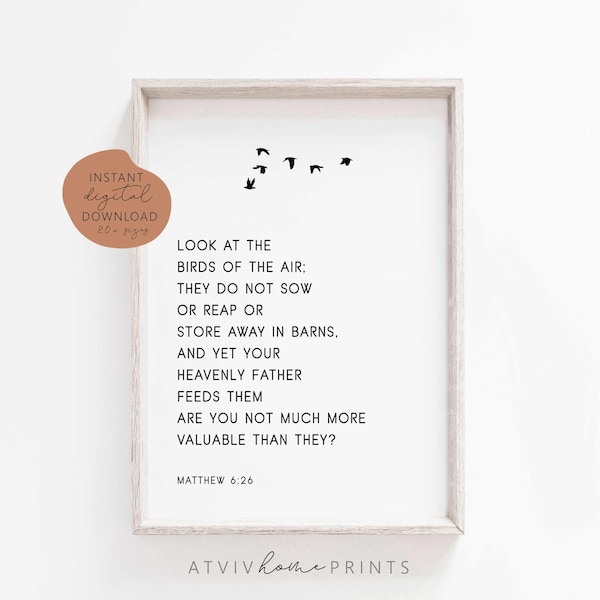 INSTANT
digital
DOWNLOAD
20+ sizes
LOOK AT THE
BIRDS OF THE AIR;
THEY DO NOT SOW
OR REAP OR
STORE AWAY IN BARNS,
AND YET YOUR
HEAVENLY FATHER
FEEDS THEM
ARE YOU NOT MUCH MORE
VALUABLE THAN THEY?
MATTHEW 6:26
ATVIV home PRINTS